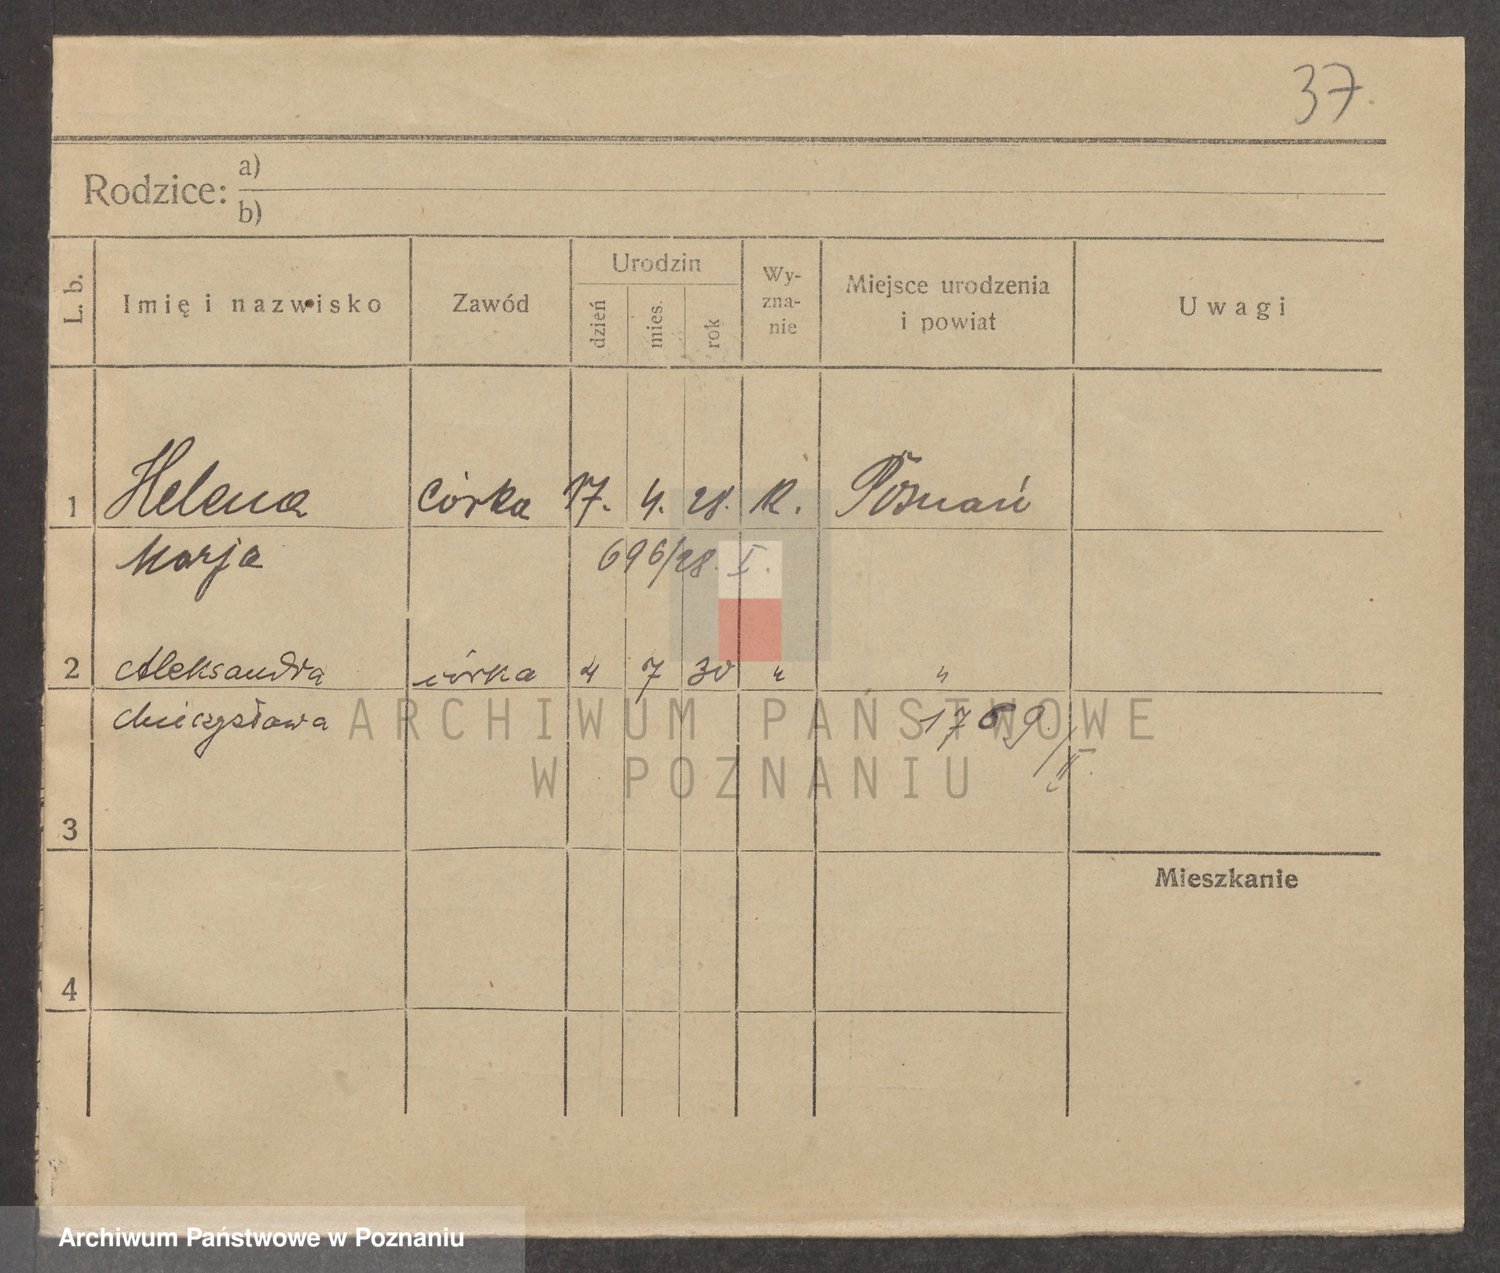 37.
Rodzice: a)
b)
L. b. Imię i nazwisko Zawód Urodzin dzień mies. rok Wy-zna-nie Miejsce urodzenia i powiat Uwagi
1 Helena córka 17. 4. 28. k. Poznań
Marja 696/28. I.
2 Aleksandra córka 4 7 30 " "
Mieczysława 1769/II.
ARCHIWUM PAŃSTWOWE
W POZNANIU
3
Mieszkanie
4
Archiwum Państwowe w Poznaniu